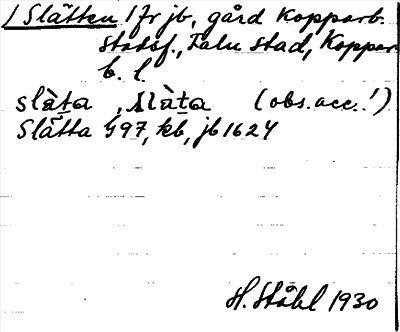 /Slätten/ fr jb, gård Kopparb.
stadsf., Falu stad, Koppar
b. l.
slàta, slàta (obs. acc.!)
Slätta G97, kb, jb 1624
H. Ståhl 1930